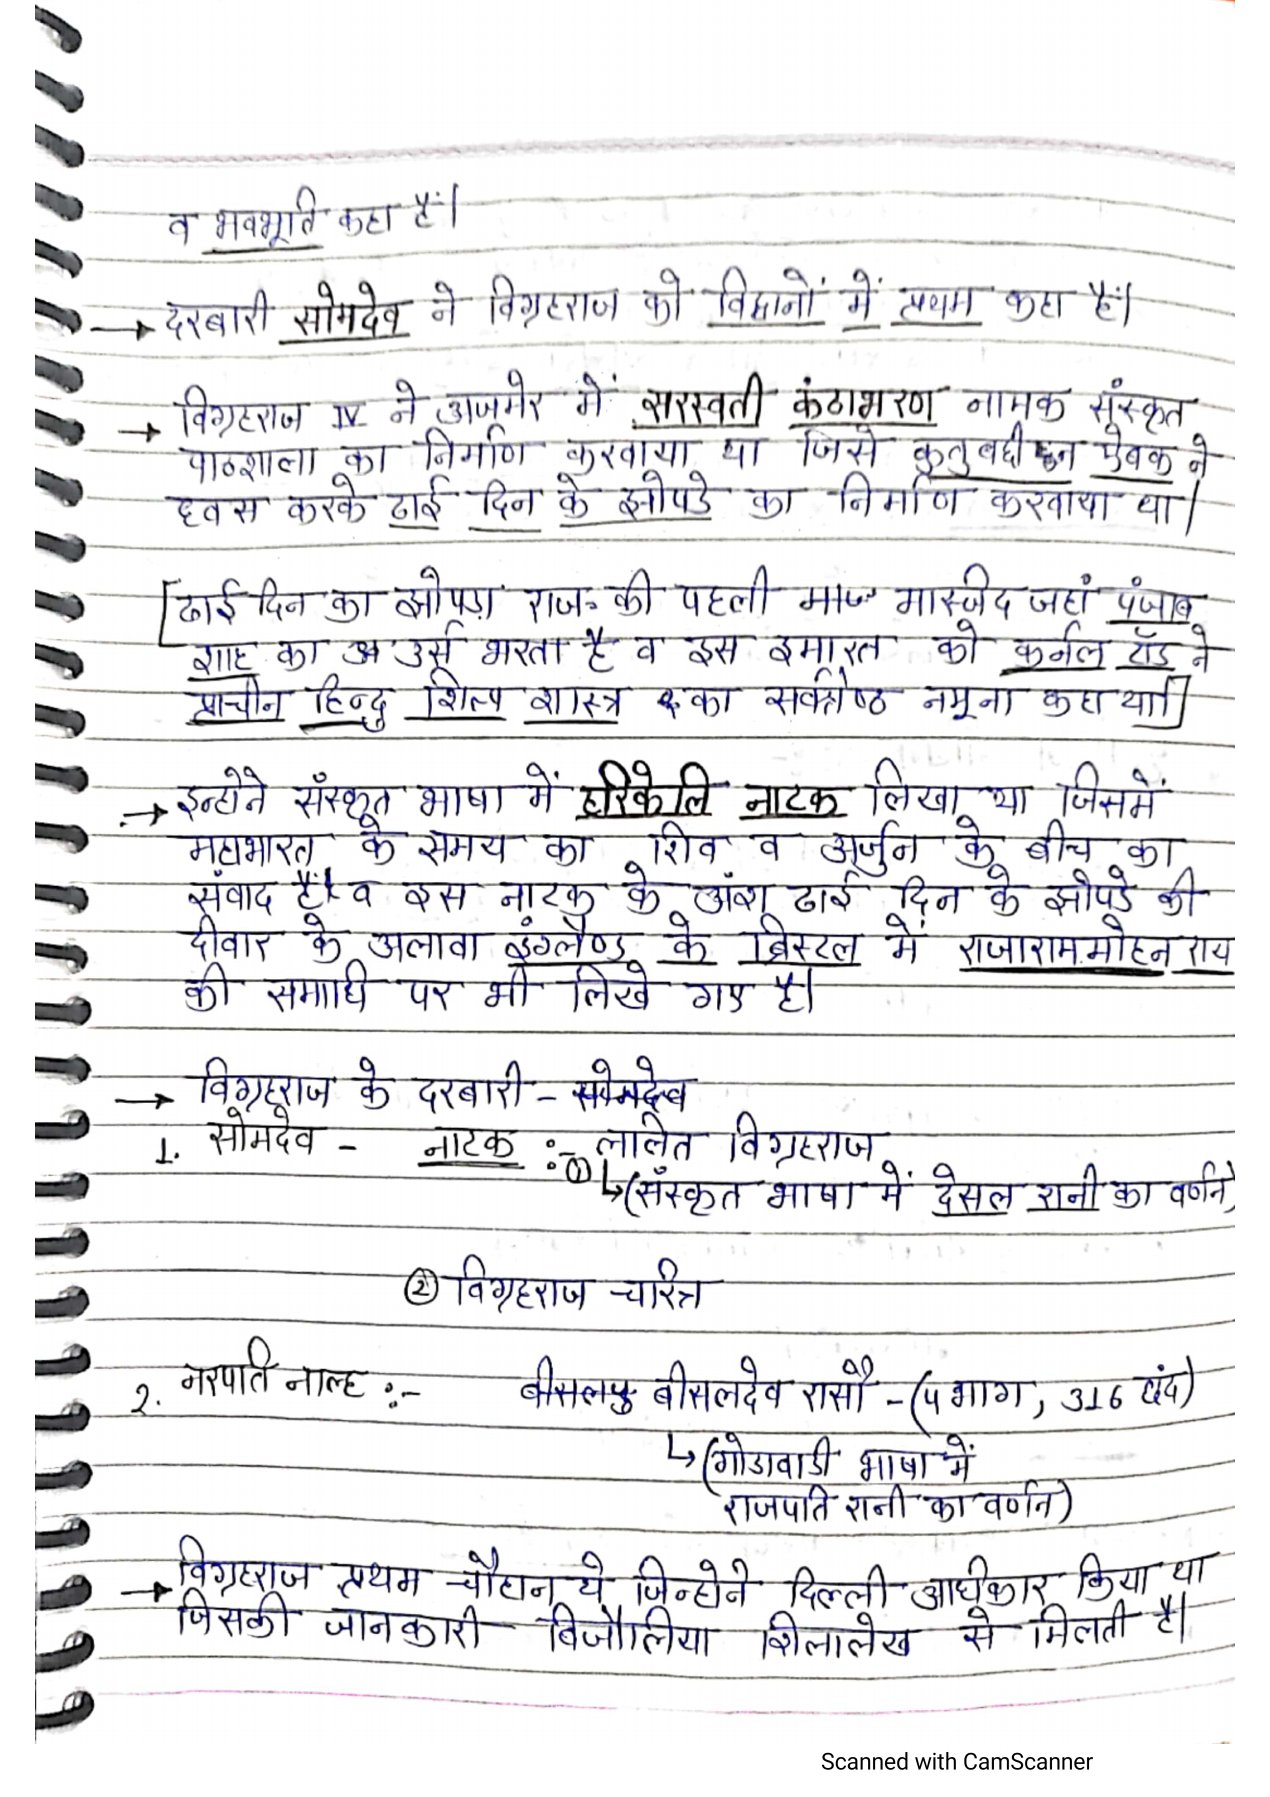 व भवभूति कहा है।
→ दरबारी सोमदेव ने विग्रहराज को विद्वानों में प्रथम कहा है।
→ विग्रहराज IV ने अजमेर में सरस्वती कंठाभरण नामक संस्कृत
पाठशाला का निर्माण करवाया था जिसे कुतुबद्दीन ऐबक ने
ध्वस करके ढाई दिन के झोपडे का निर्माण करवाया था।
[ढाई दिन का झोपड़ा राज॰ की पहली मस्जिद जहां पंजाब
शाह का उर्स भरता है व इस इमारत को कर्नल टॉड ने
प्राचीन हिन्दु शिल्प शास्त्र का सर्वश्रेष्ठ नमूना कहा था।]
→ इन्होने संस्कृत भाषा में हरिकेलि नाटक लिखा था जिसमें
महाभारत के समय का शिव व अर्जुन के बीच का
संवाद है व इस नाटक के अंश ढाई दिन के झोपडे की
दीवार के अलावा इंग्लैण्ड के ब्रिस्टल में राजाराम मोहन राय
की समाधि पर भी लिखे गए है।
→ विग्रहराज के दरबारी - सोमदेव
1. सोमदेव - नाटक :- ① ललित विग्रहराज
↳ (संस्कृत भाषा में देसल रानी का वर्णन)
② विग्रहराज चरित्र
2. नरपति नाल्ह :- बीसलदेव रासौ - (4 भाग, 316 छंद)
↳ (गोडावाडी भाषा में
राजपति रानी का वर्णन)
→ विग्रहराज प्रथम चौहान थे जिन्होने दिल्ली अधिकार किया था
जिसकी जानकारी बिजौलिया शिलालेख से मिलती है।
Scanned with CamScanner